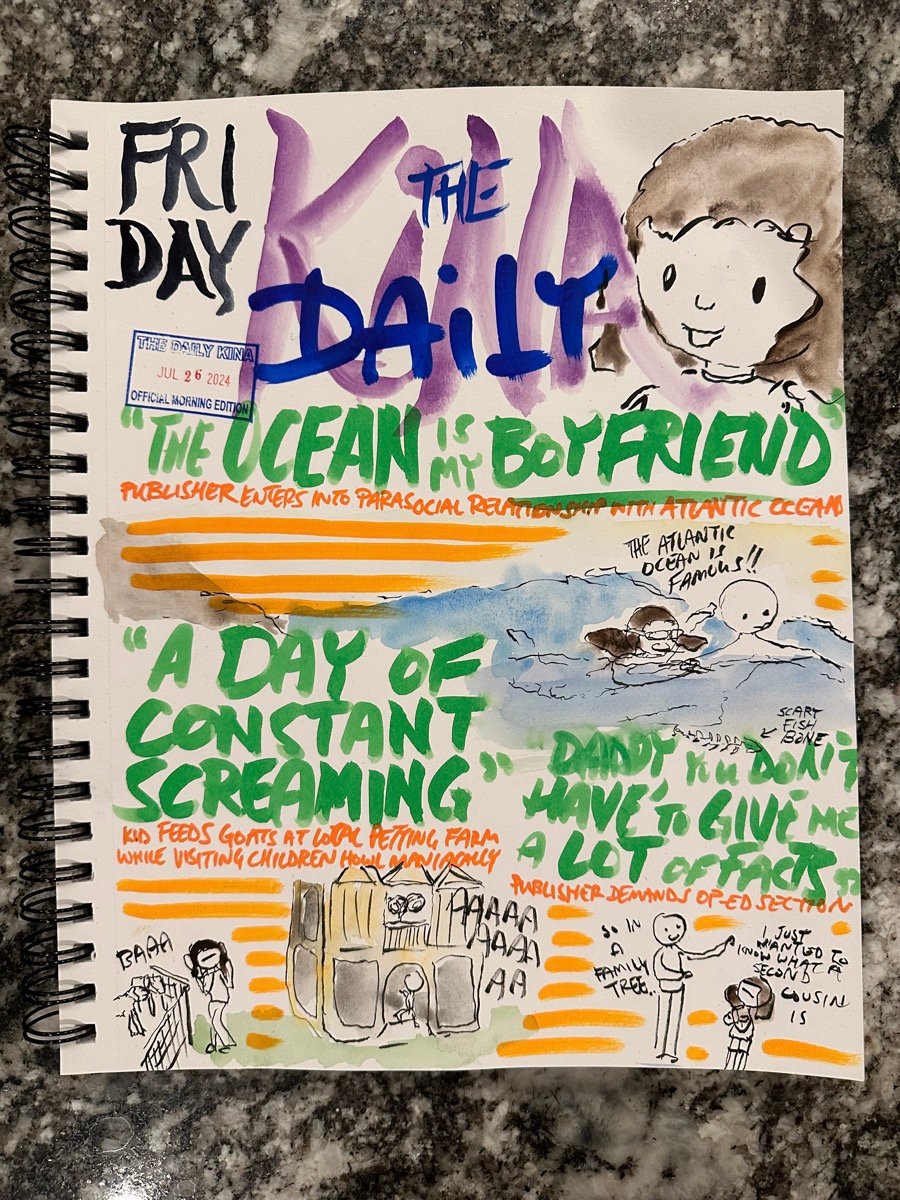 FRI
DAY
THE
DAiLY
KiNA
THE DAILY KINA
JUL 26 2024
OFFICIAL MORNING EDITION
"THE OCEAN IS MY BOYFRIEND"
PUBLISHER ENTERS INTO PARASOCIAL RELATIONSHIP WITH ATLANTIC OCEAN
THE ATLANTIC
OCEAN IS
FAMOUS!!
SCARY
FISH
BONE
"A DAY OF
CONSTANT
SCREAMING"
KID FEEDS GOATS AT LOCAL PETTING FARM
WHILE VISITING CHILDREN HOWL MANIACALLY
"DADDY YOU DON'T
HAVE TO GIVE ME
A LOT OF FACTS"
PUBLISHER DEMANDS OP-ED SECTION
BAAA
AAAAA
AAAA
AA
SO IN
A
FAMILY
TREE..
I JUST
WANTED TO
KNOW WHAT A
SECOND
COUSIN
IS